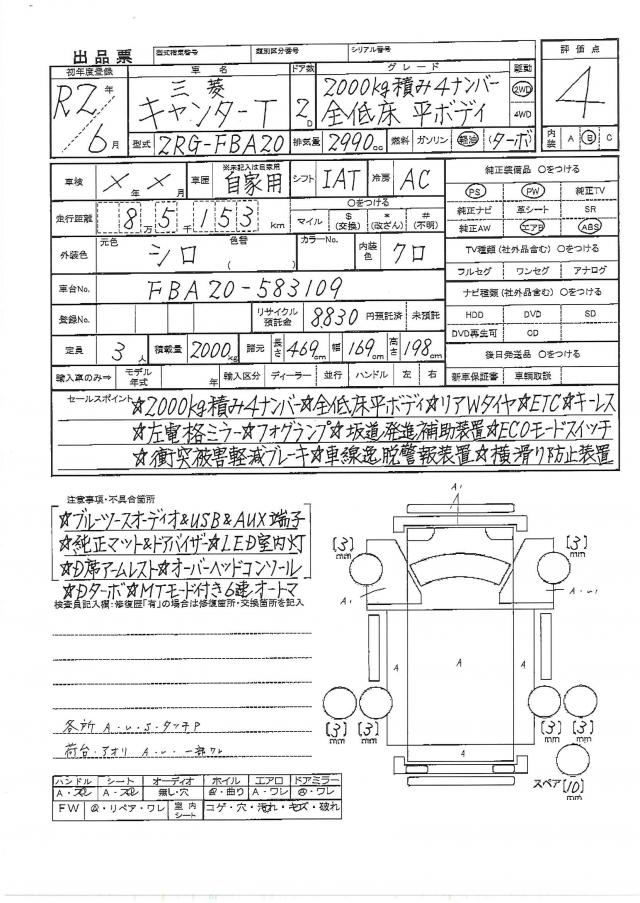 出品票 型式指定番号 類別区分番号 シリアル番号
初年度登録 車名 ドア数 グレード 駆動 評価点
R2年 6月 三菱 キャンターT 2D 2000kg積み4ナンバー 全低床 平ボディ 2WD 4WD 4
型式 2RG-FBA20 排気量 2990cc 燃料 ガソリン 軽油 ターボ 内装 A B C
車検 ×年×月 車歴 ※未記入は自家用 自家用 シフト IAT 冷房 AC 純正装備品 〇をつける
PS PW 純正TV
走行距離 8万5千153km 〇をつける マイル $(交換) *(改ざん) #(不明) 純正ナビ 革シート SR
純正AW エアB ABS
外装色 元色 シロ 色替 ( ) カラーNo. 内装色 クロ TV種類(社外品含む) 〇をつける
フルセグ ワンセグ アナログ
車台No. FBA20-583109 ナビ種類(社外品含む) 〇をつける
登録No. リサイクル預託金 8830 円預託済 未預託 HDD DVD SD
DVD再生可 CD
定員 3人 積載量 2000kg 諸元 長さ 469cm 幅 169cm 高さ 198cm 後日発送品 〇をつける
輸入車のみ⇒ モデル年式 年 輸入区分 ディーラー 並行 ハンドル 左 右 新車保証書 車輌取説
セールスポイント ☆2000kg積み4ナンバー☆全低床平ボディ☆リアWタイヤ☆ETC☆キーレス
☆左電格ミラー☆フォグランプ☆坂道発進補助装置☆ECOモードスイッチ
☆衝突被害軽減ブレーキ☆車線逸脱警報装置☆横滑り防止装置
注意事項・不具合箇所
☆ブルーツースオーディオ&USB&AUX端子
☆純正マット&ドアバイザー☆LED室内灯
☆D席アームレスト☆オーバーヘッドコンソール
☆Dターボ☆MTモード付き6速オートマ
検査員記入欄:修復歴「有」の場合は修復箇所・交換箇所を記入
各所 A・U・S・タッチP
荷台・アオリ A・U・一部ワレ
A1
[3]mm [3]mm
A1 A・U1
A A A
[3]mm [3]mm [3]mm [3]mm
A
スペア [10]mm
ハンドル シート オーディオ ホイル エアロ ドアミラー
A・スレ A・スレ 無し・穴 曲り A・ワレ ワレ
FW リペア・ワレ 室内シート コゲ・穴・汚れ・キズ・破れ